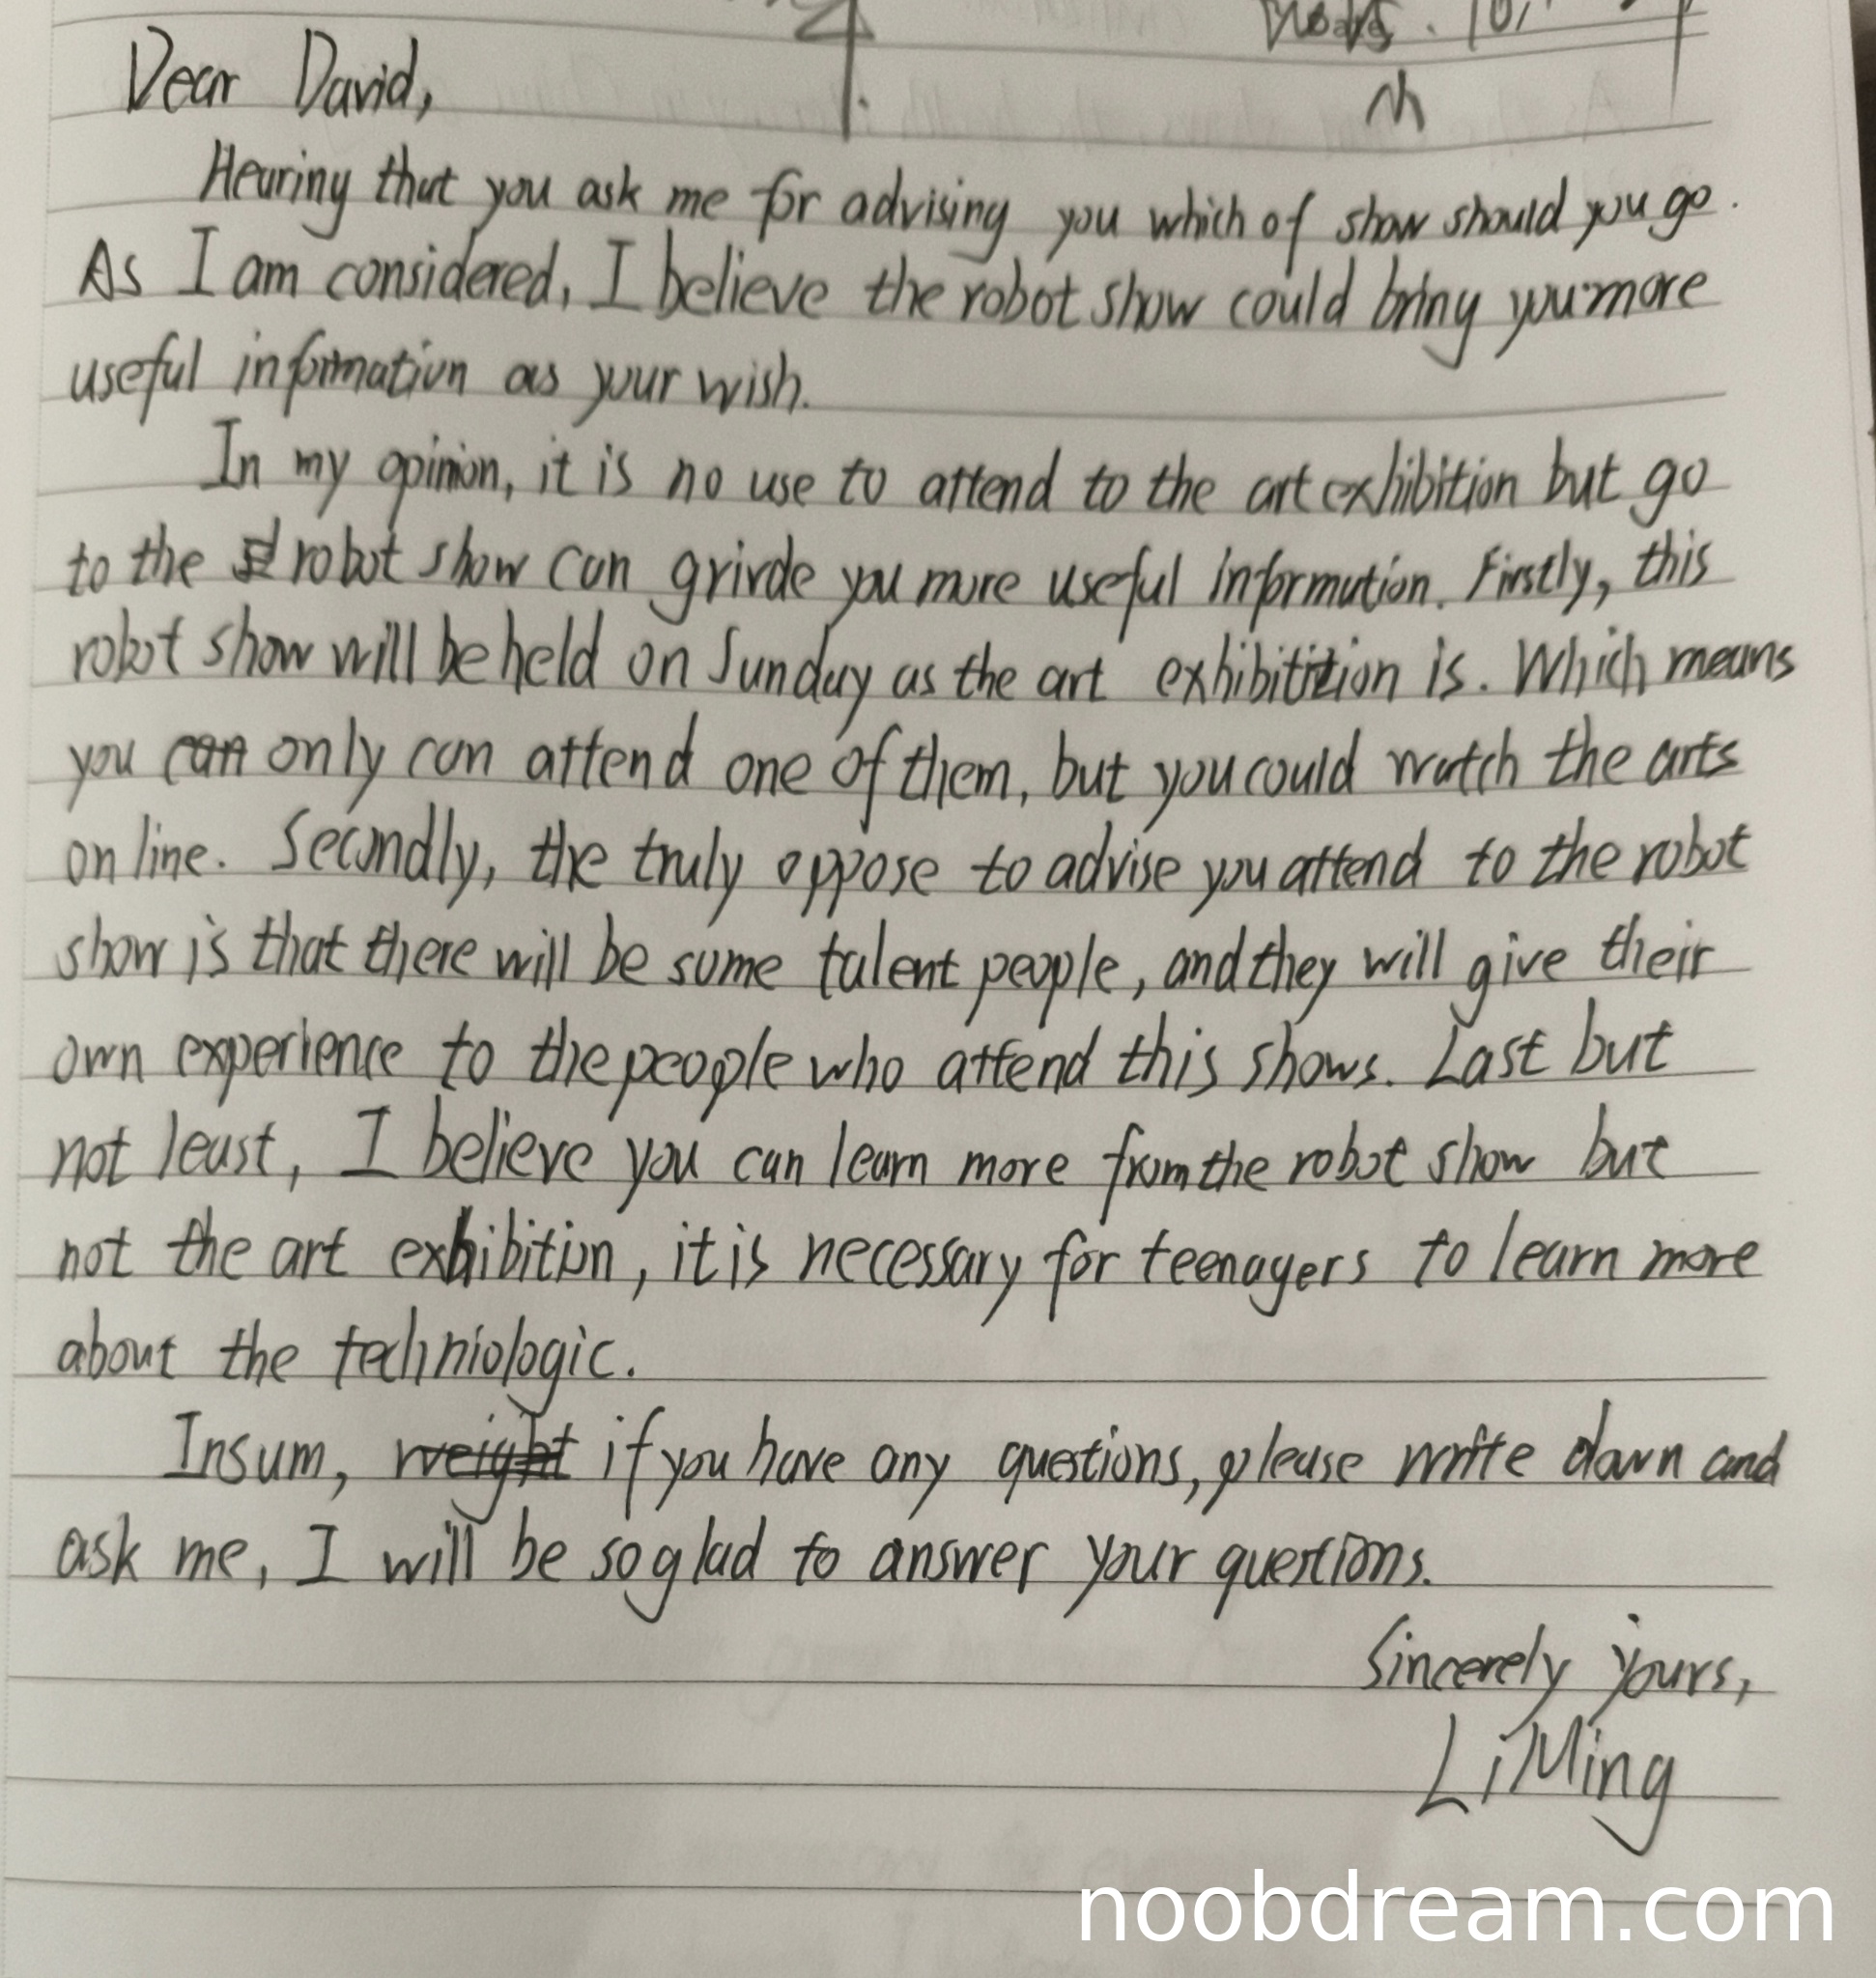 Dear David,
Hearing that you ask me for advising you which of show should you go.
As I am considered, I believe the robot show could bring you more
useful information as your wish.
In my opinion, it is no use to attend to the art exhibition but go
to the robot show can grivde you more useful information. Firstly, this
robot show will be held on Sunday as the art exhibitition is. Which means
you can only can attend one of them, but you could watch the arts
on line. Secondly, the truly oppose to advise you attend to the robot
show is that there will be some talent people, and they will give their
own experience to the people who attend this shows. Last but
not least, I believe you can learn more from the robot show but
not the art exhibition, it is necessary for teenagers to learn more
about the techniologic.
In sum, weight if you have any questions, please write down and
ask me, I will be so glad to answer your questions.
Sincerely yours,
Li Ming
noobdream.com